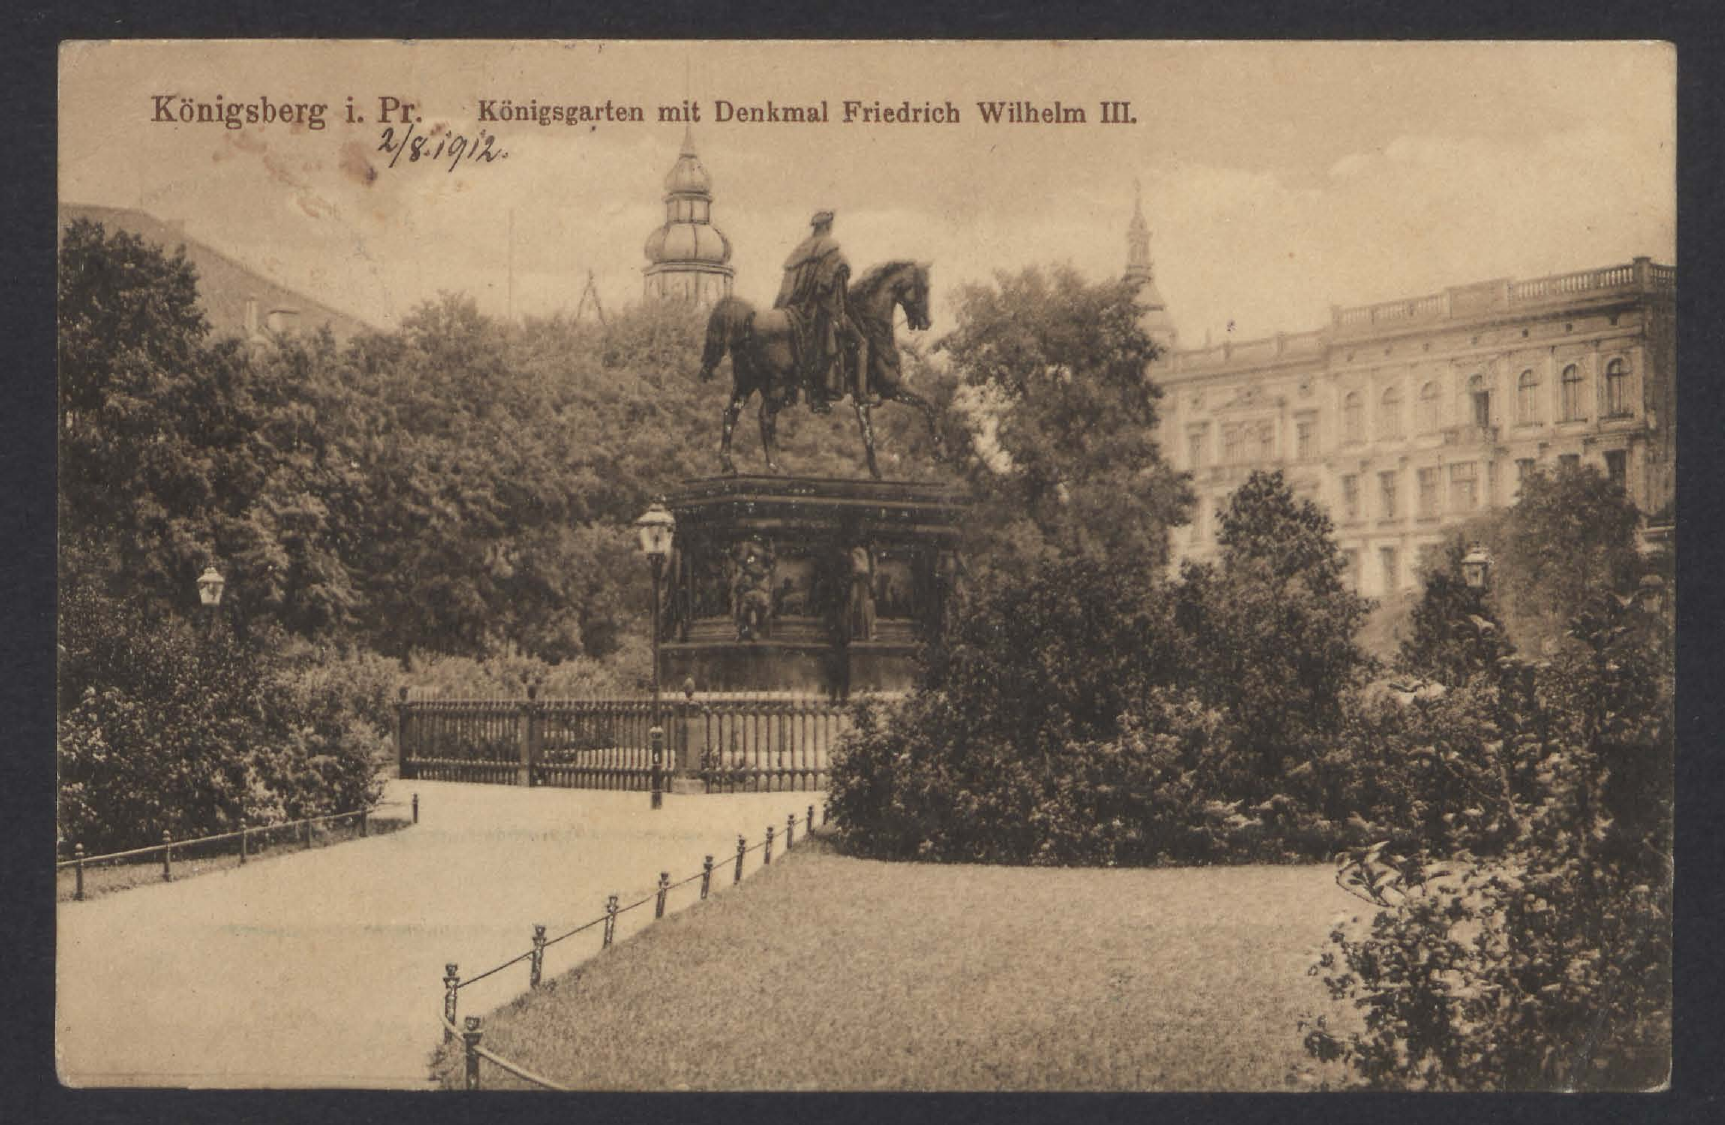 Königsberg i. Pr. Königsgarten mit Denkmal Friedrich Wilhelm III.
2/8.1912.